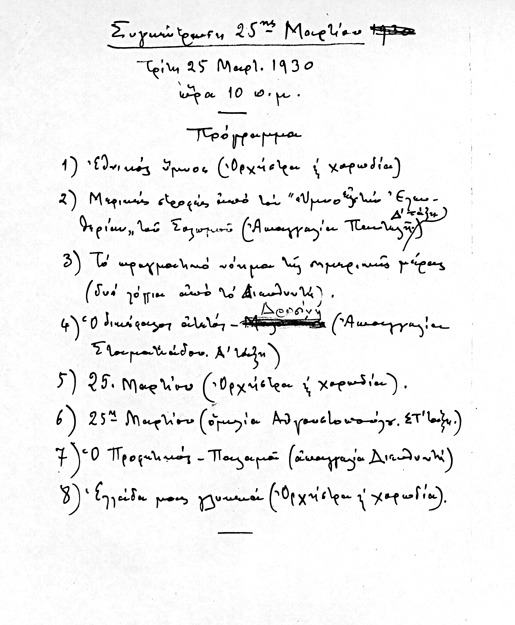 Συγκέντρωση 25ης Μαρτίου 1930
Τρίτη 25 Μαρτ. 1930
ὥρα 10 π.μ.
Πρόγραμμα
1) Ἐθνικός Ὕμνος (Ὀρχήστρα ἤ χορωδία)
2) Μερικές στροφές ἀπό τόν "Ὕμνο εἰς τήν Ἐλευ-
θερίαν" τοῦ Σολωμοῦ (Ἀπαγγελία Δ' τάξη)
3) Τό πραγματικό νόημα τῆς σημερινῆς μέρας
(δυό λόγια ἀπό τό Διευθυντή).
4) Ὁ δικέφαλος ἀετός - Δροσίνη (Ἀπαγγελία
Σταματιάδου. Δ' τάξη)
5) 25. Μαρτίου (Ὀρχήστρα ἤ χορωδία).
6) 25η Μαρτίου (ὁμιλία Αὐγουστοπούλου. ΣΤ' τάξη.)
7) Ὁ Προφητικός - Παλαμᾶ (ἀπαγγελία Διευθυντῆ)
8) Ἑλλάδα μας γλυκειά (Ὀρχήστρα ἤ χορωδία).